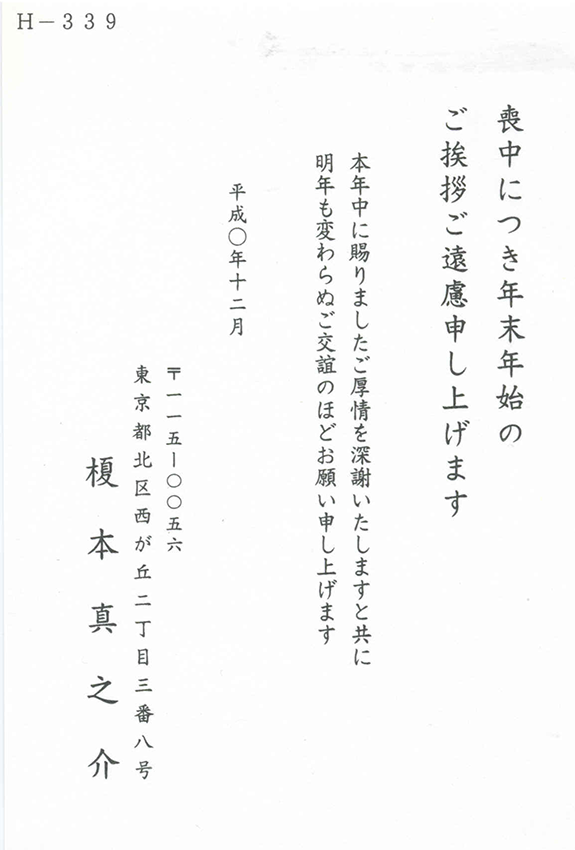 H－339
喪中につき年末年始の
ご挨拶ご遠慮申し上げます
本年中に賜りましたご厚情を深謝いたしますと共に
明年も変わらぬご交誼のほどお願い申し上げます
平成〇年十二月
〒一一五ー〇〇五六
東京都北区西が丘二丁目三番八号
榎本真之介